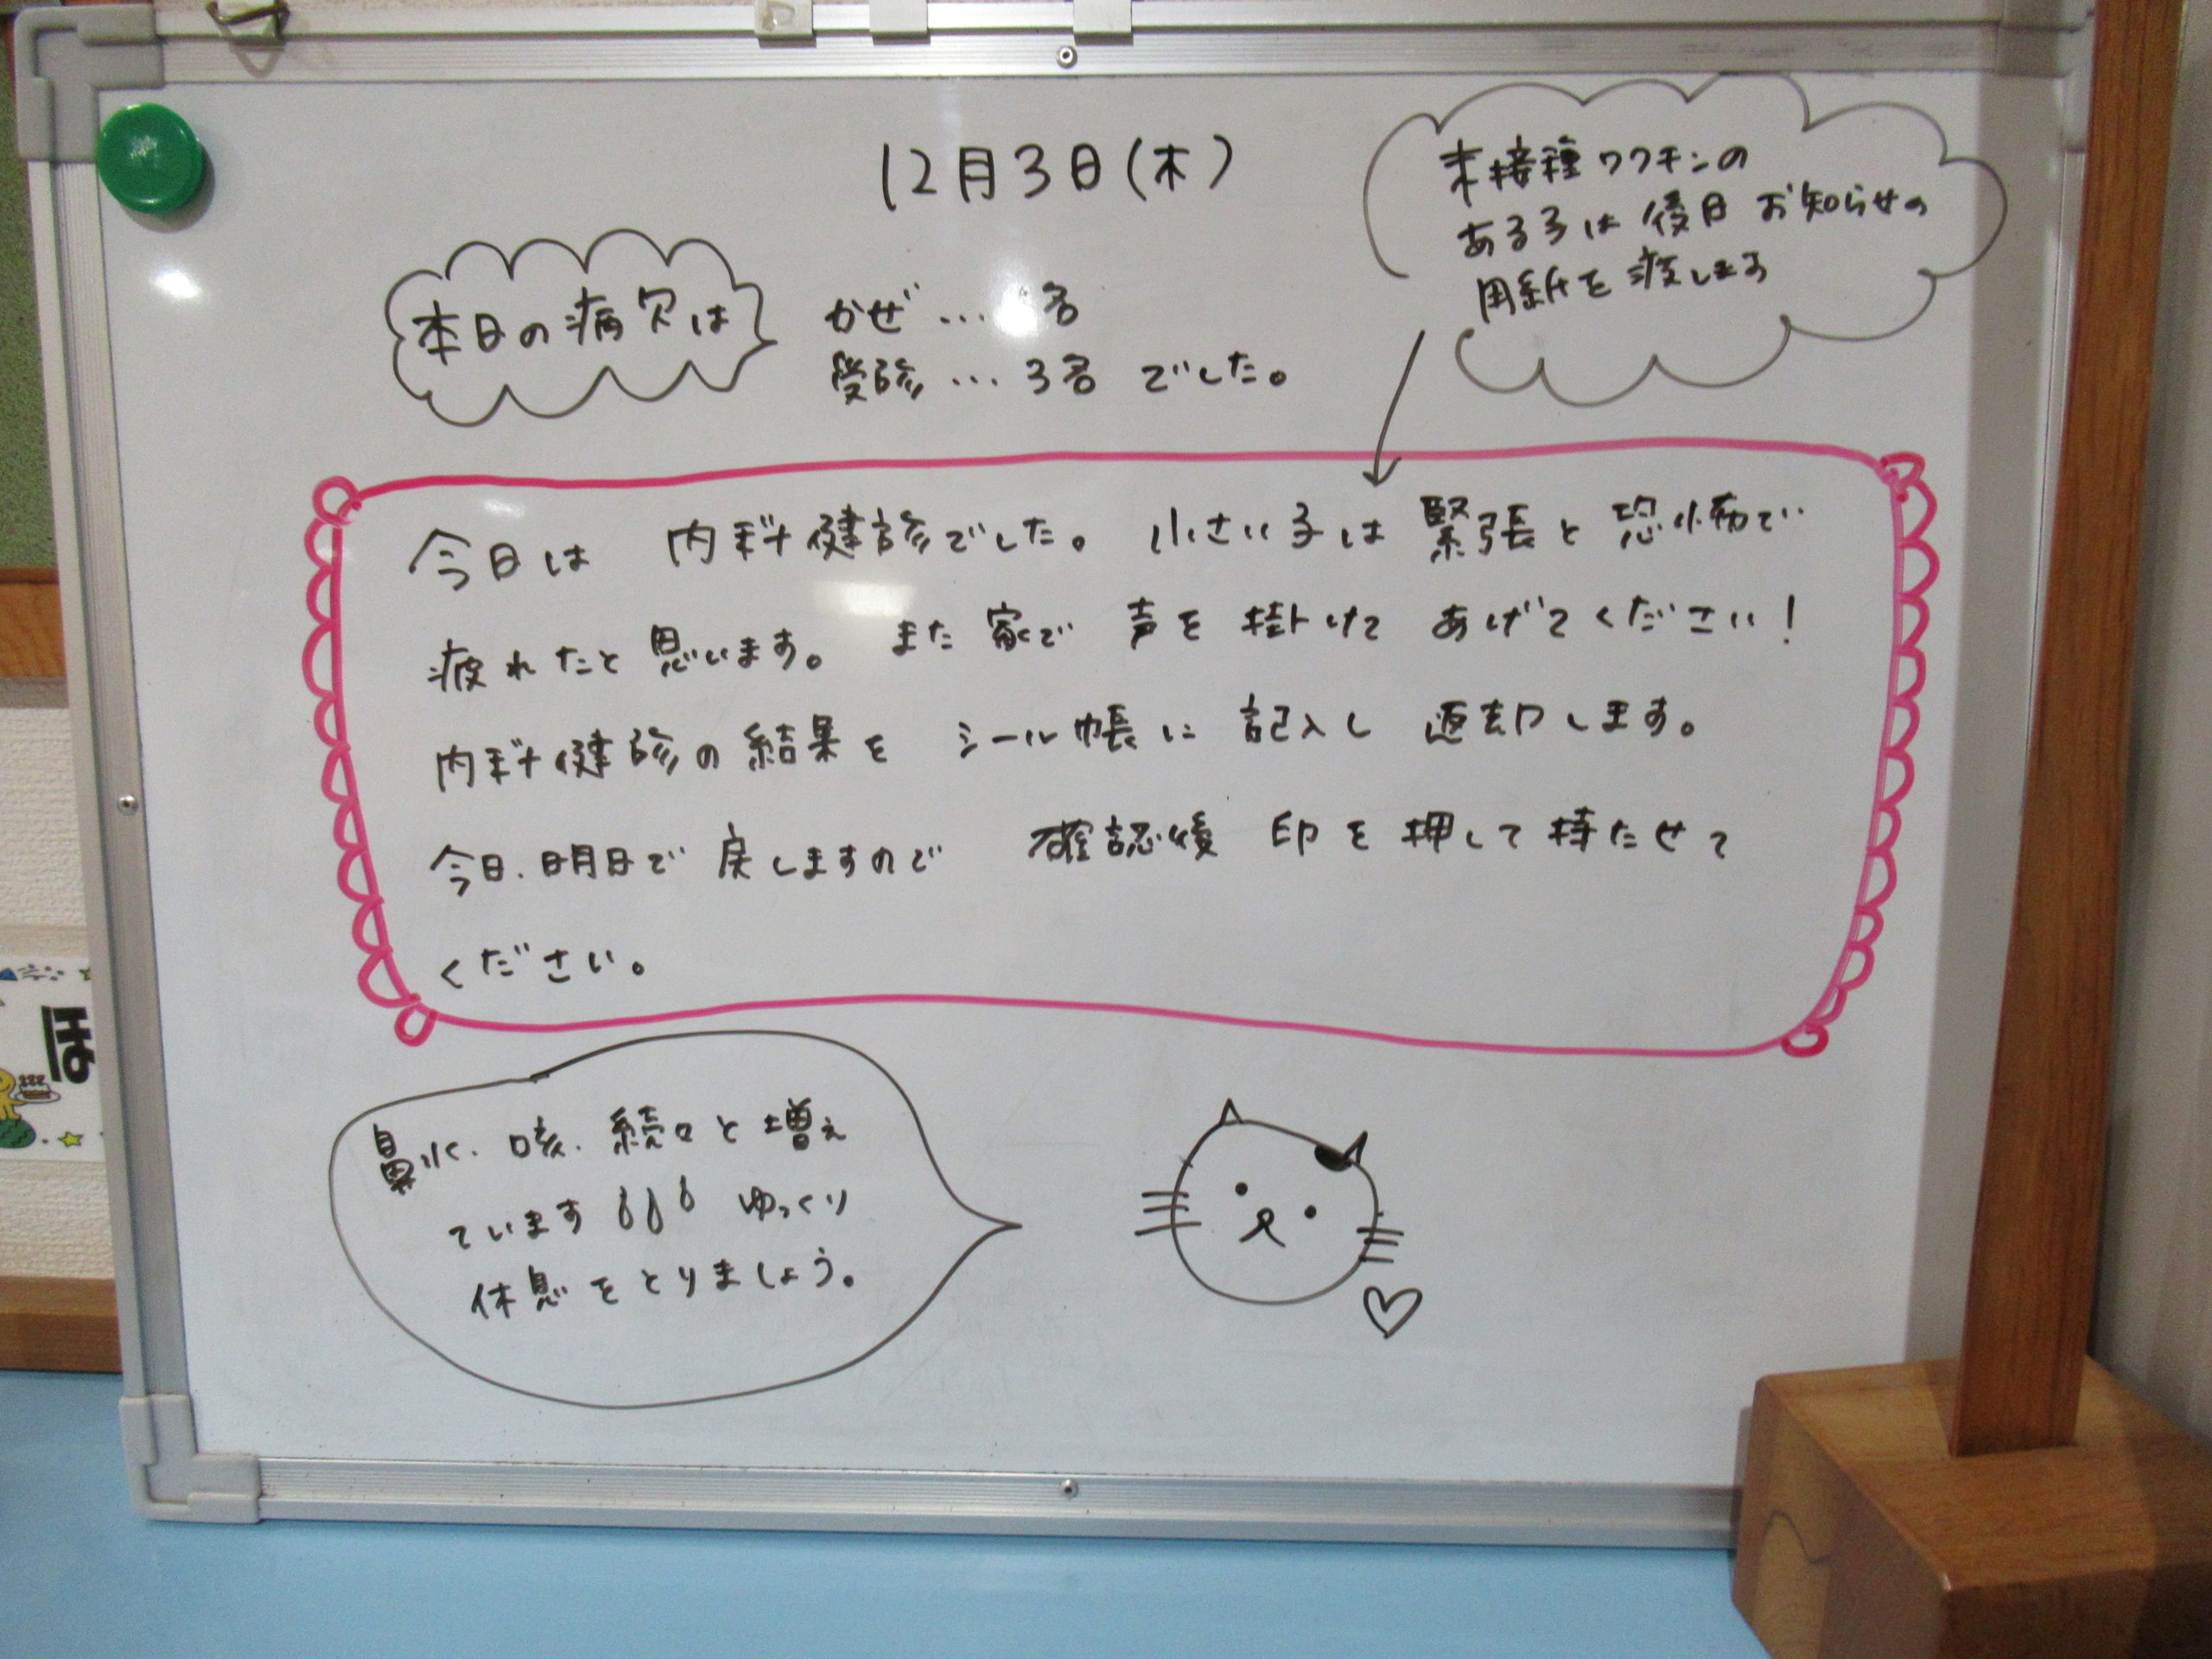 12月3日(木)
未接種ワクチンの
ある子は後日お知らせの
用紙を渡します
本日の病欠は
かぜ… 名
受診…3名 でした。
今日は 内科健診でした。 小さい子は 緊張と恐怖で
疲れたと思います。 また家で 声を掛けて あげてください!
内科健診の結果を シール帳に 記入し 返却します。
今日、明日で 戻しますので 確認後 印を押して持たせて
ください。
鼻水、咳、続々と増え
ています ゆっくり
休息をとりましょう。
ほ